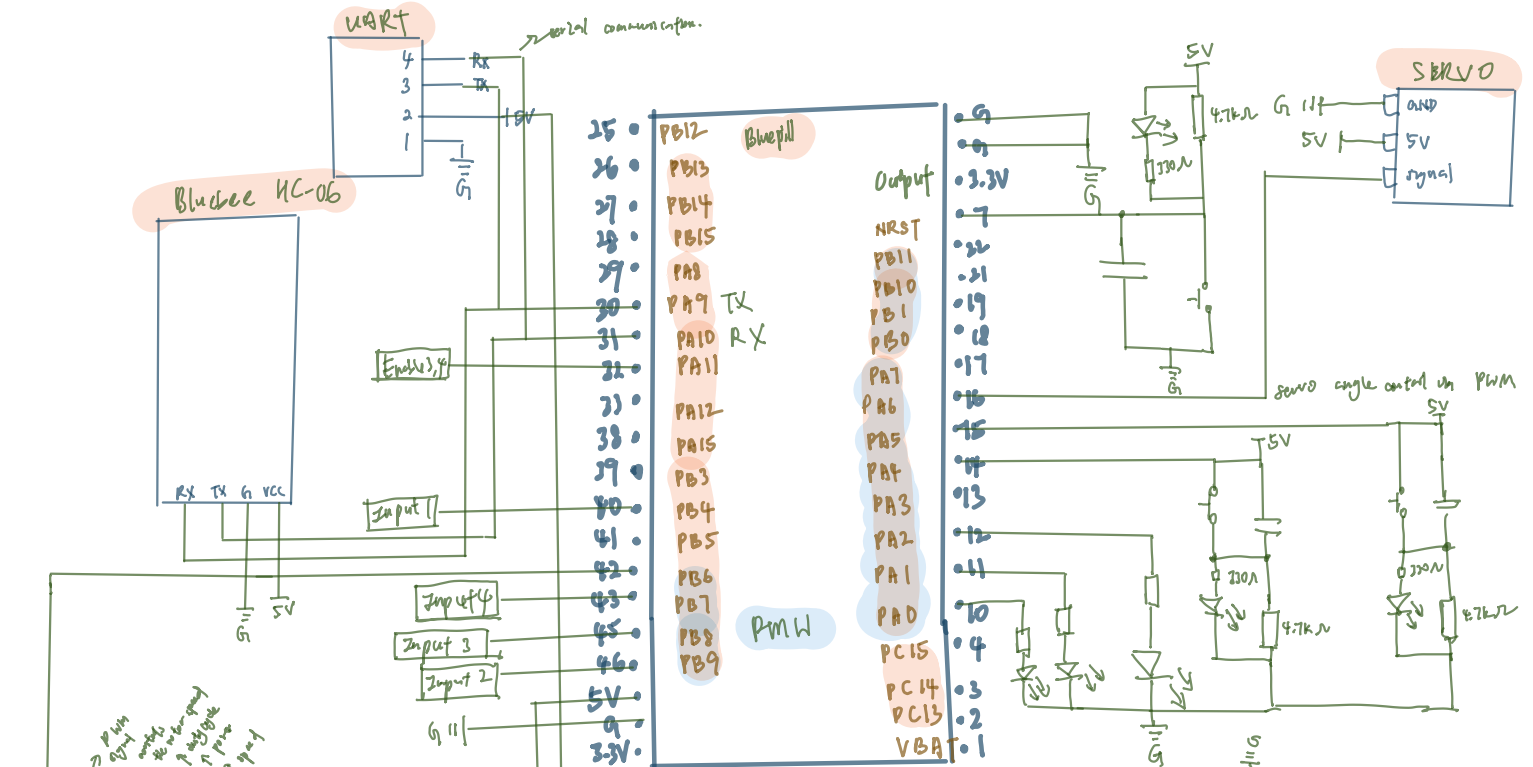 UART
serial communication.
4 RX
3 TX
2 5V
1
G
Bluebee HC-06
RX TX G VCC
G
5V
Enable3,4
Input 1
Input 4
Input 3
Input 2
G
PWM
signal
the motor speed
↑ duty cycle
↑ power
speed
Bluepill
25 PB12
26 PB13
27 PB14
28 PB15
29 PA8
30 PA9 TX
31 PA10 RX
32 PA11
33 PA12
38 PA15
39 PB3
40 PB4
41 PB5
42 PB6
43 PB7
45 PB8
46 PB9
5V
G
3.3V
PMW
G
G
Output 3.3V
NRST 7
PB11 22
PB10 21
PB1 19
PB0 18
PA7 17
PA6 16
PA5 15
PA4 14
PA3 13
PA2 12
PA1 11
PA0 10
PC15 4
PC14 3
PC13 2
VBAT 1
G
5V
4.7kΩ
330Ω
G
SERVO
G GND
5V 5V
signal
servo angle control via PWM
5V
330Ω
4.7kΩ
5V
330Ω
4.7kΩ
G
G